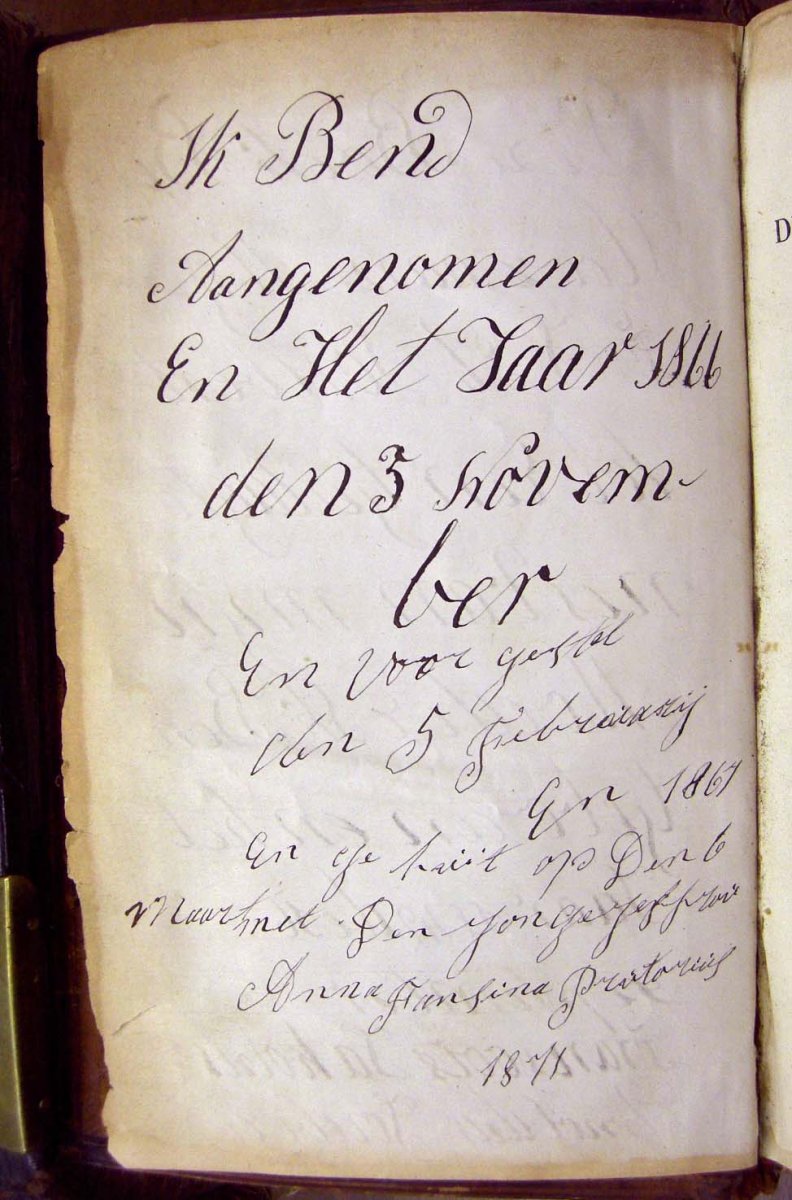 Ik Bend
Aangenomen
En Het Jaar 1866
den 3 Novem-
ber
En voor gestel
den 5 Febrauarij
En 1867
En ge trüit op Den 6
Maart met Den Jonge
Anna Fansina Pretorius
1871
D